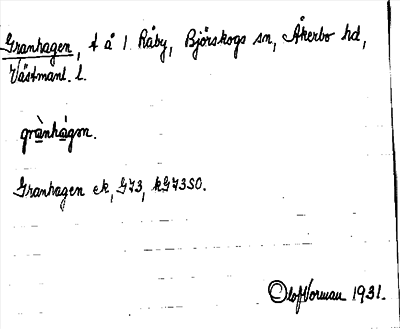 Granhagen, t å 1 Råby, Björskogs sn, Åkerbo hd,
Västmanl. l.
grànhágǝn.
Granhagen ek, G73, kG73SO.
Olof Norman 1931.